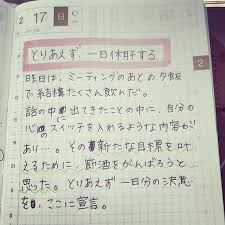 2 17 日
とりあえず、一日休肝する
昨日は、ミーティングのあとの夕飯
で結構たくさん飲んだ。
話の中に出てきたことの中に、自分の
心のスイッチを入れるような内容が
あり…。その新たな目標を叶
えるために、節酒をがんばろうと
思った。とりあえず一日分の決意
を、ここに宣言。
2
17